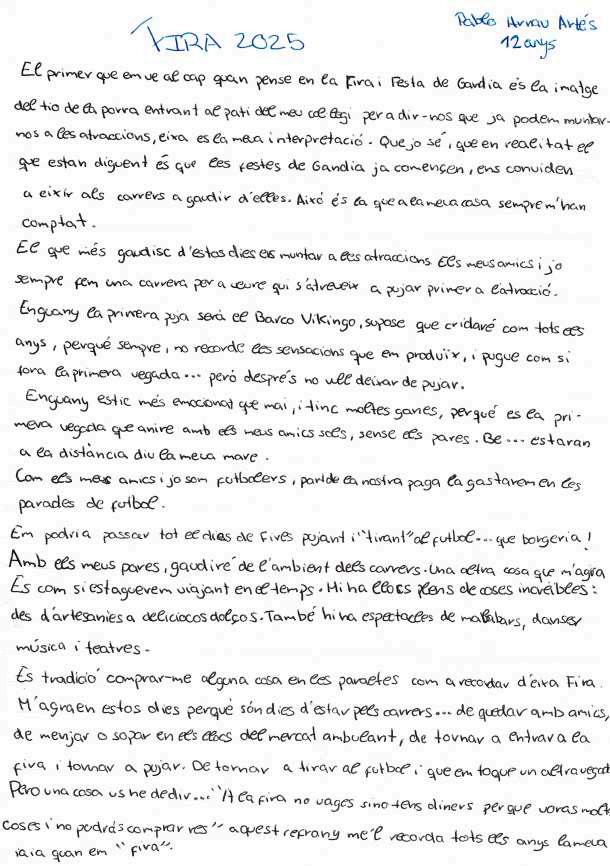 FIRA 2025
Pablo Arnau Artés
12 anys
El primer que em ve al cap quan pense en la Fira i Festa de Gandia és la imatge
del tio de la porra entrant al pati del meu col·legi per a dir-nos que ja podem muntar-
nos a les atraccions, eixa es la meua interpretació. Que jo sé, que en realitat el
que estan diguent és que les festes de Gandia ja començen, ens conviden
a eixir als carrers a gaudir d'elles. Aixó és la que a la meua casa sempre m'han
comptat.
El que més gaudisc d'estos dies es muntar a les atraccions. Els meus amics i jo
sempre fem una carrera per a veure qui s'atreveix a pujar primer a l'atracció.
Enguany la primera puja será el Barco Vikingo, supose que cridaré com tots els
anys, perqué sempre, no recorde les sensacions que em produïx, i pugue com si
fora la primera vegada... peró després no vull deixar de pujar.
Enguany estic més emocionat que mai, i tinc moltes ganes, perqué es la pri-
mera vegada que anire amb els meus amics sols, sense els pares. Be... estaran
a la distància diu la meua mare.
Com els meus amics i jo som futbolers, part de la nostra paga la gastarem en les
parades de futbol.
Em podria passar tot el dies de fires pujant i "tirant" al futbol... que borgeria!
Amb els meus pares, gaudiré de l'ambient dels carrers. Una altra cosa que m'agra
És com si estaguerem viajant en el temps. Hi ha llocs plens de coses increïbles:
des d'artesanies a deliciocos dolços. També hi ha espectacles de malabars, danses
música i teatres.
És tradició comprar-me alguna cosa en les paraetes com a recordar d'eixa Fira.
M'agraen estos dies perqué són dies d'estar pels carrers... de quedar amb amics,
de menjar o sopar en els llocs del mercat ambulant, de tornar a entrar a la
fira i tornar a pujar. De tornar a tirar al futbol i que em toque un altra vegada
Pero una cosa us he de dir... "A la fira no vages si no tens diners per que voras molt
coses i no podrás comprar res" aquest refrany me'l recorda tots els anys la meua
iaia quan em "fira".